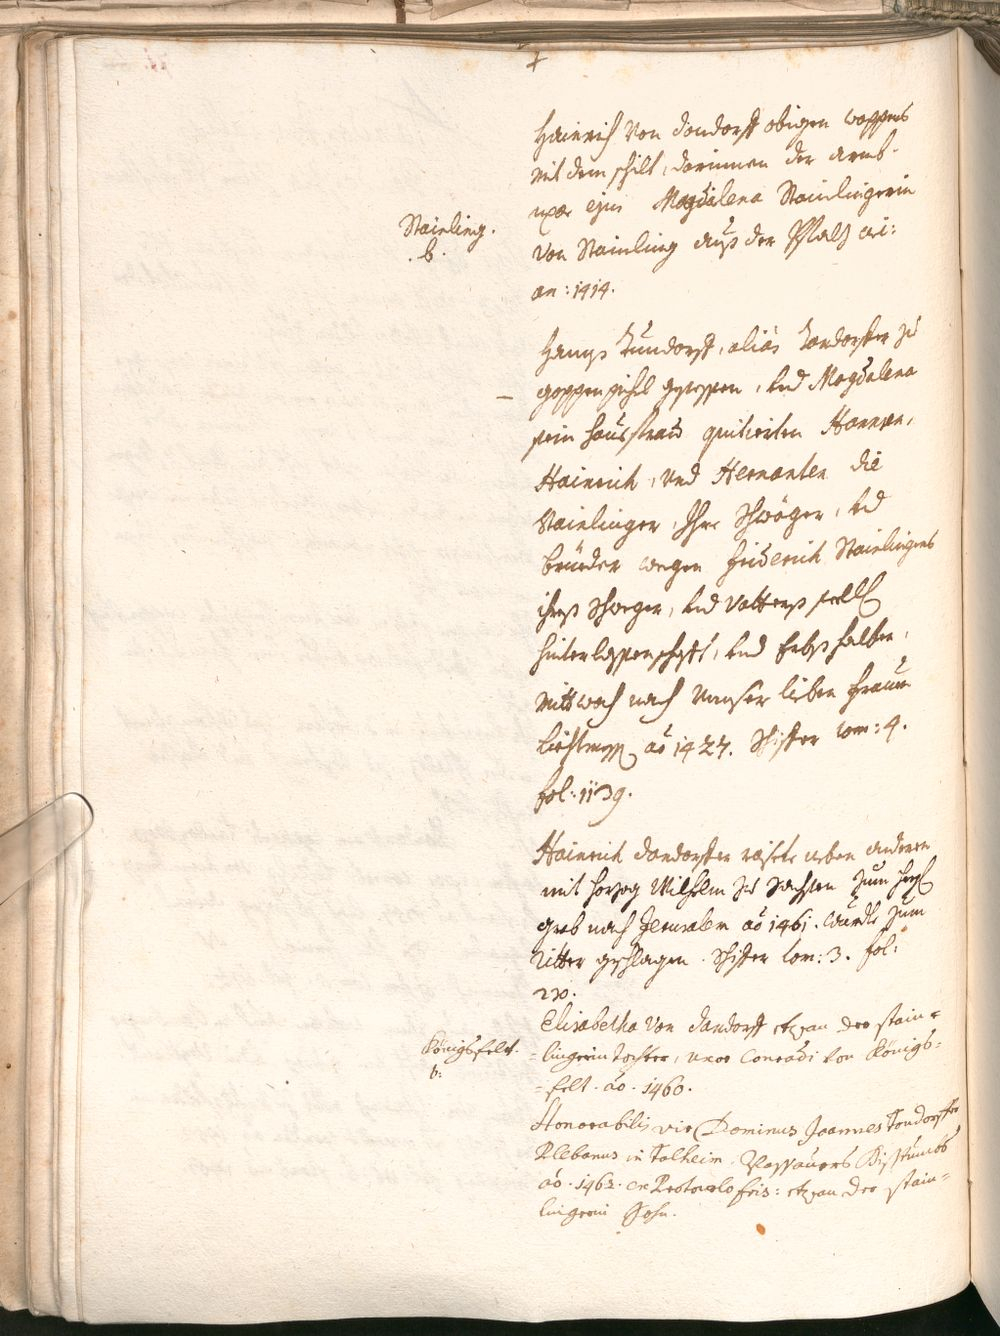 +
Hainrich Von Dondorff obigen wappens
mit dem schilt, darinnen der arms.
uxor ejus Magdalena Stainlingerin
Stainling.
. b.
von Stainling auß der Pfalz
an: 1414.
Hanns Tundorff, alias Tondorffer zu
goppenpihel gesessen, und Magdalena
sein hausfrau quitierten Hannsen,
Hainrich, und Hernanten die
Stainlinger, Ihre Schwäger, und
brüeder wegen Friderich Stainlingers
ihres Schweger, und Vatterß seell
hinterlassenschafft, und Erbß halber,
Mittwoch nach Unnser lieben frauen
Liechtmess ao 1427. Schifer tom: 4.
fol: 1139.
Hainrich Dandorffer raisete neben anderen
mit herzog Wilhelm zu Sachsen zum heyl
grab nach Jerusalem ao 1461. wurde zum
ritter geschlagen. Schifer tom: 3. fol:
230.
Elisabetha Von Dandorff der stain=
Königsfelt.
b:
=lingerin tochter, uxor Conradi von Königs=
=felt. ao. 1460.
Honorabilis vir Dominus Joannes Tondorffer
Plebanus in Talheim. Passauers Bisstumbs
ao. 1462. ex Protocolo fris: der stain=
lingerin Sohn.